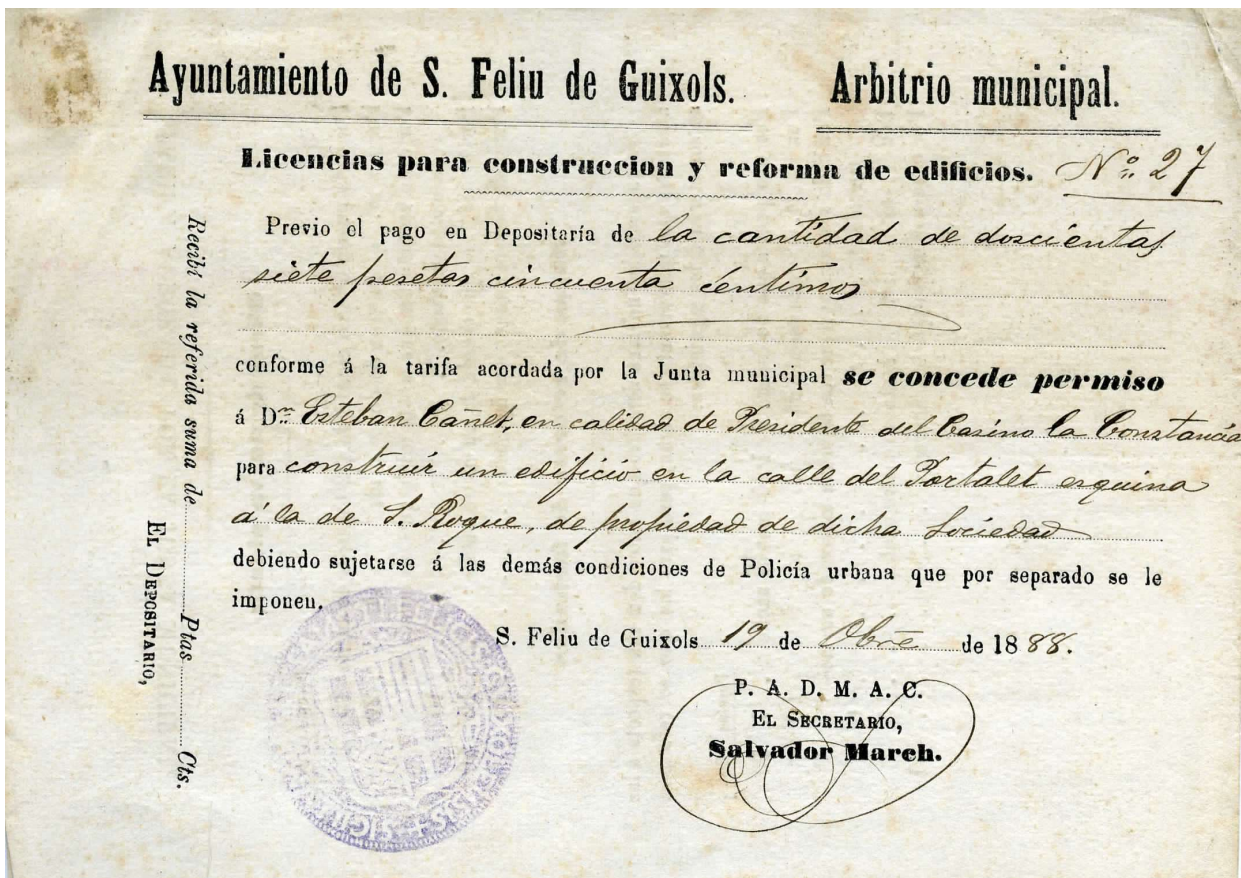 Ayuntamiento de S. Feliu de Guixols. Arbitrio municipal.
Licencias para construccion y reforma de edificios. Nº 27
Previo el pago en Depositaría de la cantidad de doscientas
siete pesetas cincuenta céntimos
conforme á la tarifa acordada por la Junta municipal se concede permiso
á Dn Esteban Cañet, en calidad de Presidente del Casino la Constancia
para construir un edificio en la calle del Portalet esquina
á la de S. Roque, de propiedad de dicha Sociedad
debiendo sujetarse á las demás condiciones de Policía urbana que por separado se le
imponen.
S. Feliu de Guixols 19 de Obre de 1888.
P. A. D. M. A. C.
EL SECRETARIO,
Salvador March.
Recibí la referida suma de Ptas Cts.
EL DEPOSITARIO,